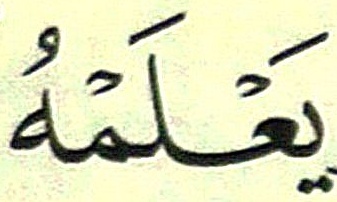 يَعْلَمْهُ